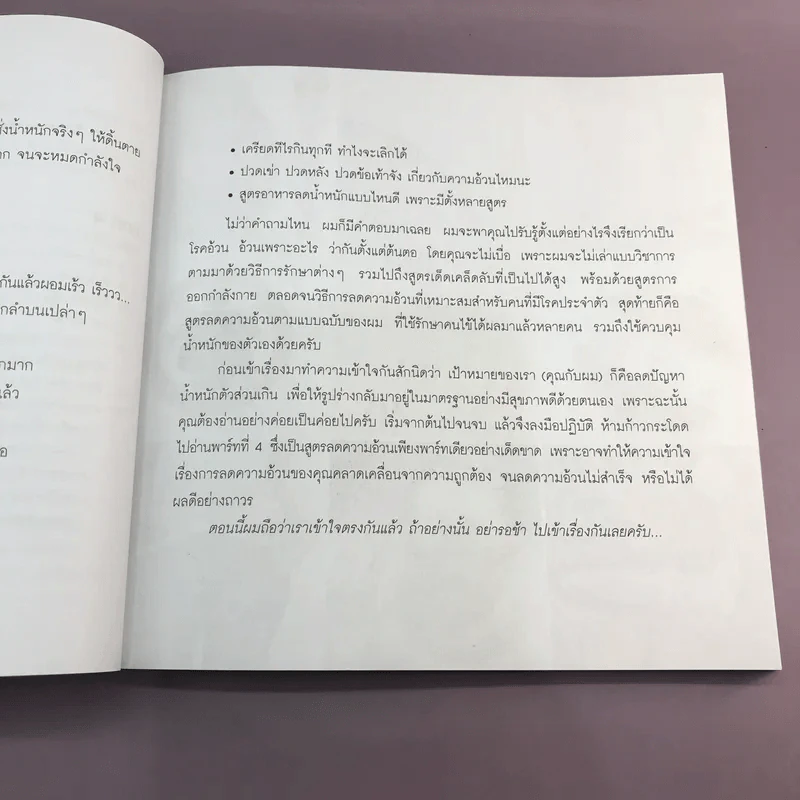 ั่งน้ำหนักจริงๆ ให้ดิ้นตาย
จนจะหมดกำลังใจ
กันแล้วผอมเร็ว เร็ววว...
กลำบนเปล่าๆ
กมาก
ล้ว
อ
• เครียดทีไรกินทุกที ทำไงจะเลิกได้
• ปวดเข่า ปวดหลัง ปวดข้อเท้าจัง เกี่ยวกับความอ้วนไหมนะ
• สูตรอาหารลดน้ำหนักแบบไหนดี เพราะมีตั้งหลายสูตร
ไม่ว่าคำถามไหน ผมก็มีคำตอบมาเฉลย ผมจะพาคุณไปรับรู้ตั้งแต่อย่างไรจึงเรียกว่าเป็น
โรคอ้วน อ้วนเพราะอะไร ว่ากันตั้งแต่ต้นตอ โดยคุณจะไม่เบื่อ เพราะผมจะไม่เล่าแบบวิชาการ
ตามมาด้วยวิธีการรักษาต่างๆ รวมไปถึงสูตรเด็ดเคล็ดลับที่เป็นไปได้สูง พร้อมด้วยสูตรการ
ออกกำลังกาย ตลอดจนวิธีการลดความอ้วนที่เหมาะสมสำหรับคนที่มีโรคประจำตัว สุดท้ายก็คือ
สูตรลดความอ้วนตามแบบฉบับของผม ที่ใช้รักษาคนไข้ได้ผลมาแล้วหลายคน รวมถึงใช้ควบคุม
น้ำหนักของตัวเองด้วยครับ
ก่อนเข้าเรื่องมาทำความเข้าใจกันสักนิดว่า เป้าหมายของเรา (คุณกับผม) ก็คือลดปัญหา
น้ำหนักตัวส่วนเกิน เพื่อให้รูปร่างกลับมาอยู่ในมาตรฐานอย่างมีสุขภาพดีด้วยตนเอง เพราะฉะนั้น
คุณต้องอ่านอย่างค่อยเป็นค่อยไปครับ เริ่มจากต้นไปจนจบ แล้วจึงลงมือปฏิบัติ ห้ามก้าวกระโดด
ไปอ่านพาร์ทที่ 4 ซึ่งเป็นสูตรลดความอ้วนเพียงพาร์ทเดียวอย่างเด็ดขาด เพราะอาจทำให้ความเข้าใจ
เรื่องการลดความอ้วนของคุณคลาดเคลื่อนจากความถูกต้อง จนลดความอ้วนไม่สำเร็จ หรือไม่ได้
ผลดีอย่างถาวร
ตอนนี้ผมถือว่าเราเข้าใจตรงกันแล้ว ถ้าอย่างนั้น อย่ารอช้า ไปเข้าเรื่องกันเลยครับ...